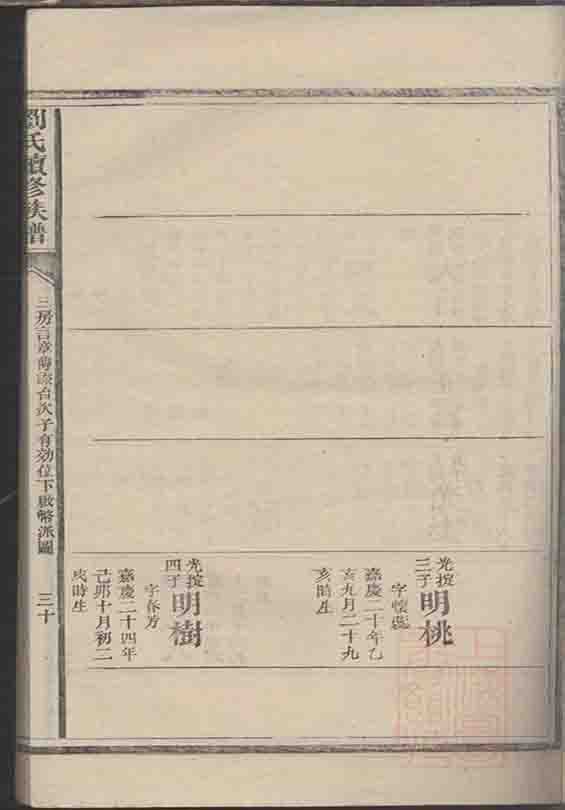 光㨮三子
明桃
字懷
嘉慶二十年乙
亥九月二十九
亥時生
光㨮四子
明樹
字春芳
嘉慶二十四年
己卯十月初二
戌時生
劉氏續修族譜
三房言章傳 台次子有効位下啟幣派圖
三十